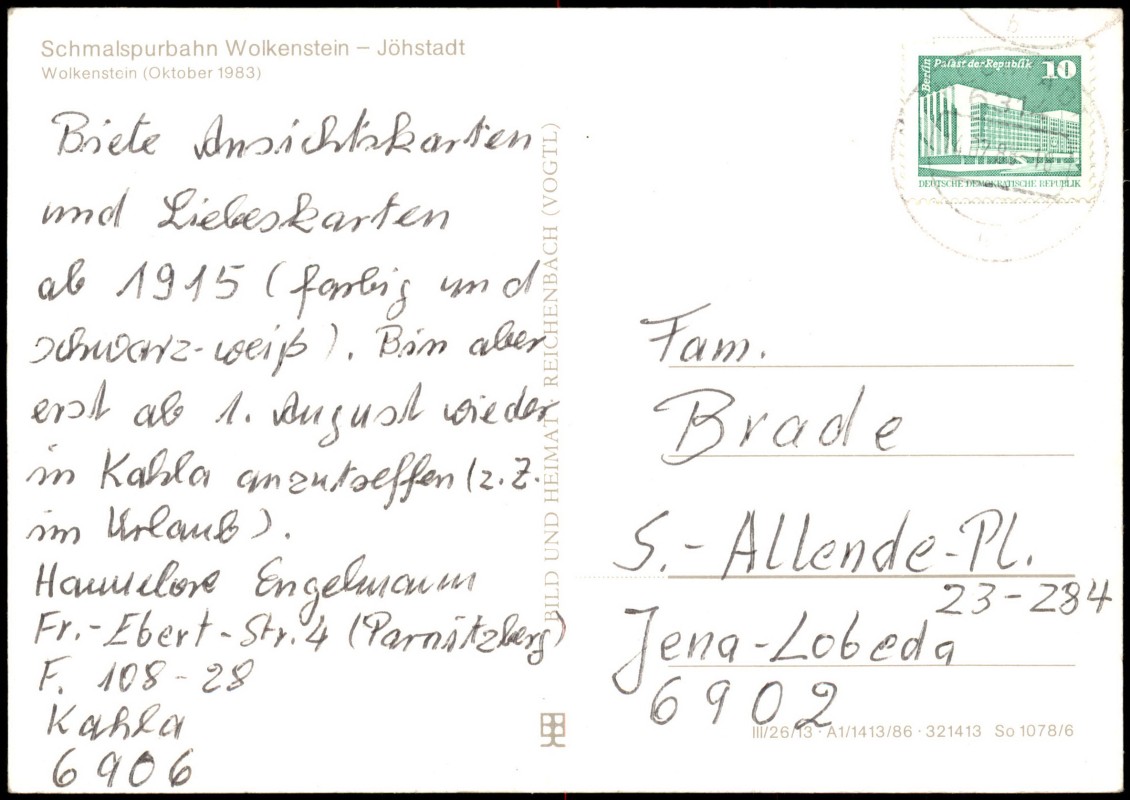 Schmalspurbahn Wolkenstein – Jöhstadt
Wolkenstein (Oktober 1983)
Biete Ansichtskarten
und Liebeskarten
ab 1915 (farbig und
schwarz-weiß). Bin aber
erst ab 1. August wieder
in Kahla anzutreffen (z.Z.
im Urlaub).
Hannelore Engelmann
Fr.-Ebert-Str. 4 (Parnitzberg)
F. 108-28
Kahla
6906
BILD UND HEIMAT · REICHENBACH (VOGTL)
Berlin Palast der Republik 10
DEUTSCHE DEMOKRATISCHE REPUBLIK
Fam.
Brade
S.-Allende-Pl.
23-284
Jena-Lobeda
6902
III/26/13 · A1/1413/86 · 321413 So 1078/6